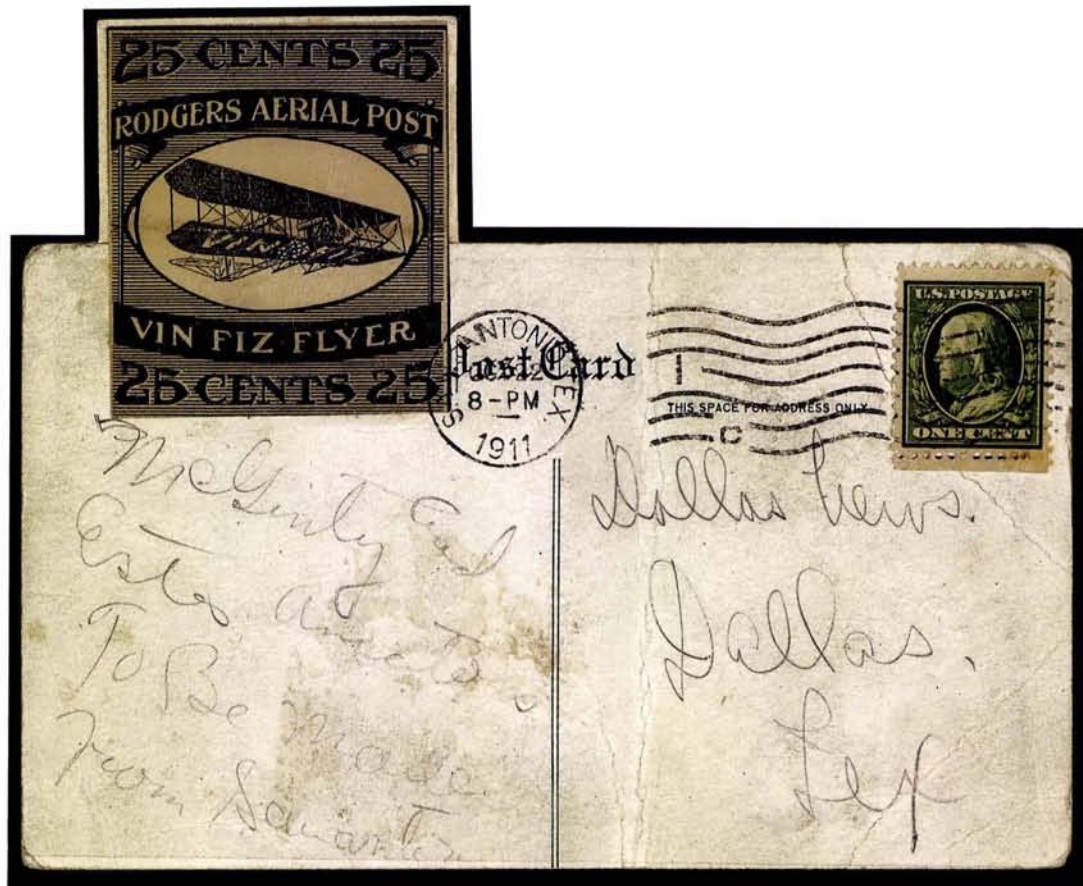 25 CENTS 25
RODGERS AERIAL POST
VIN FIZ
VIN FIZ FLYER
25 CENTS 25
Post Card
SAN ANTONIO, TEX.
OCT 22
8-PM
1911
1
C
THIS SPACE FOR ADDRESS ONLY
U.S. POSTAGE
ONE CENT
McGinty and
Estes
To Be made
From
Dallas News.
Dallas,
Tex